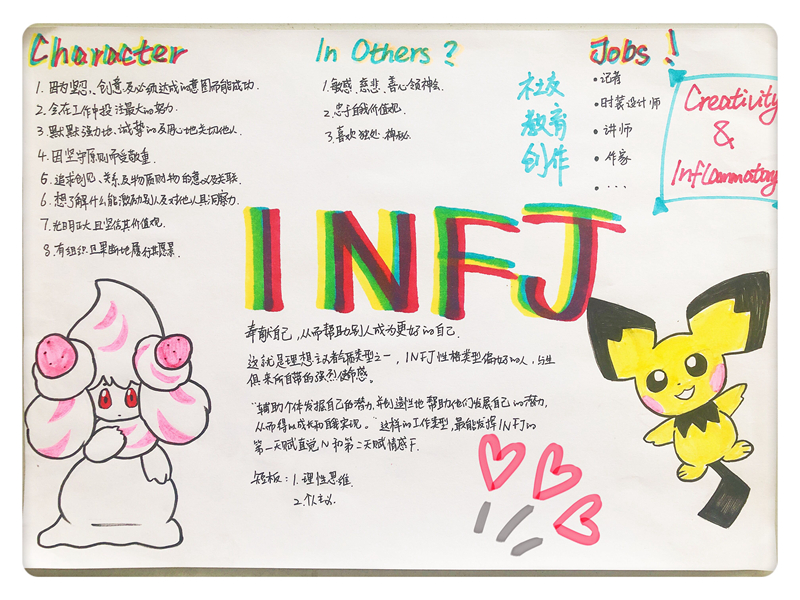 Character
1. 因为坚忍、创意及必须达成的意图而能成功.
2. 会在工作中投注最大的努力.
3. 默默强力地、诚挚的及用心地关切他人.
4. 因坚守原则而受敬重.
5. 追求创见、关系及物质财物的意义及关联.
6. 想了解什么能激励别人及对他人具洞察力.
7. 光明正大且坚信其价值观.
8. 有组织且果断地履行其愿景.
In Others ?
1. 敏感. 慈悲. 善心领神会.
2. 忠于自我价值观.
3. 喜欢独处. 神秘.
社交
教育
创作
Jobs !
• 记者
• 时装设计师
• 讲师
• 作家
• ...
Creativity
&
Inflammatory
INFJ
奉献自己，从而帮助别人成为更好的自己.
这就是理想主义者气质类型之一，INFJ性格类型偏好的人，与生
俱来所自带的强烈使命感。
"辅助个体发掘自己的潜力，并创造性地帮助他们发展自己的潜力，
从而得以成长和自我实现。"这样的工作类型，最能发挥INFJ的
第一天赋直觉N和第二天赋情感F.
短板：1. 理性思维.
2. 个人主义.